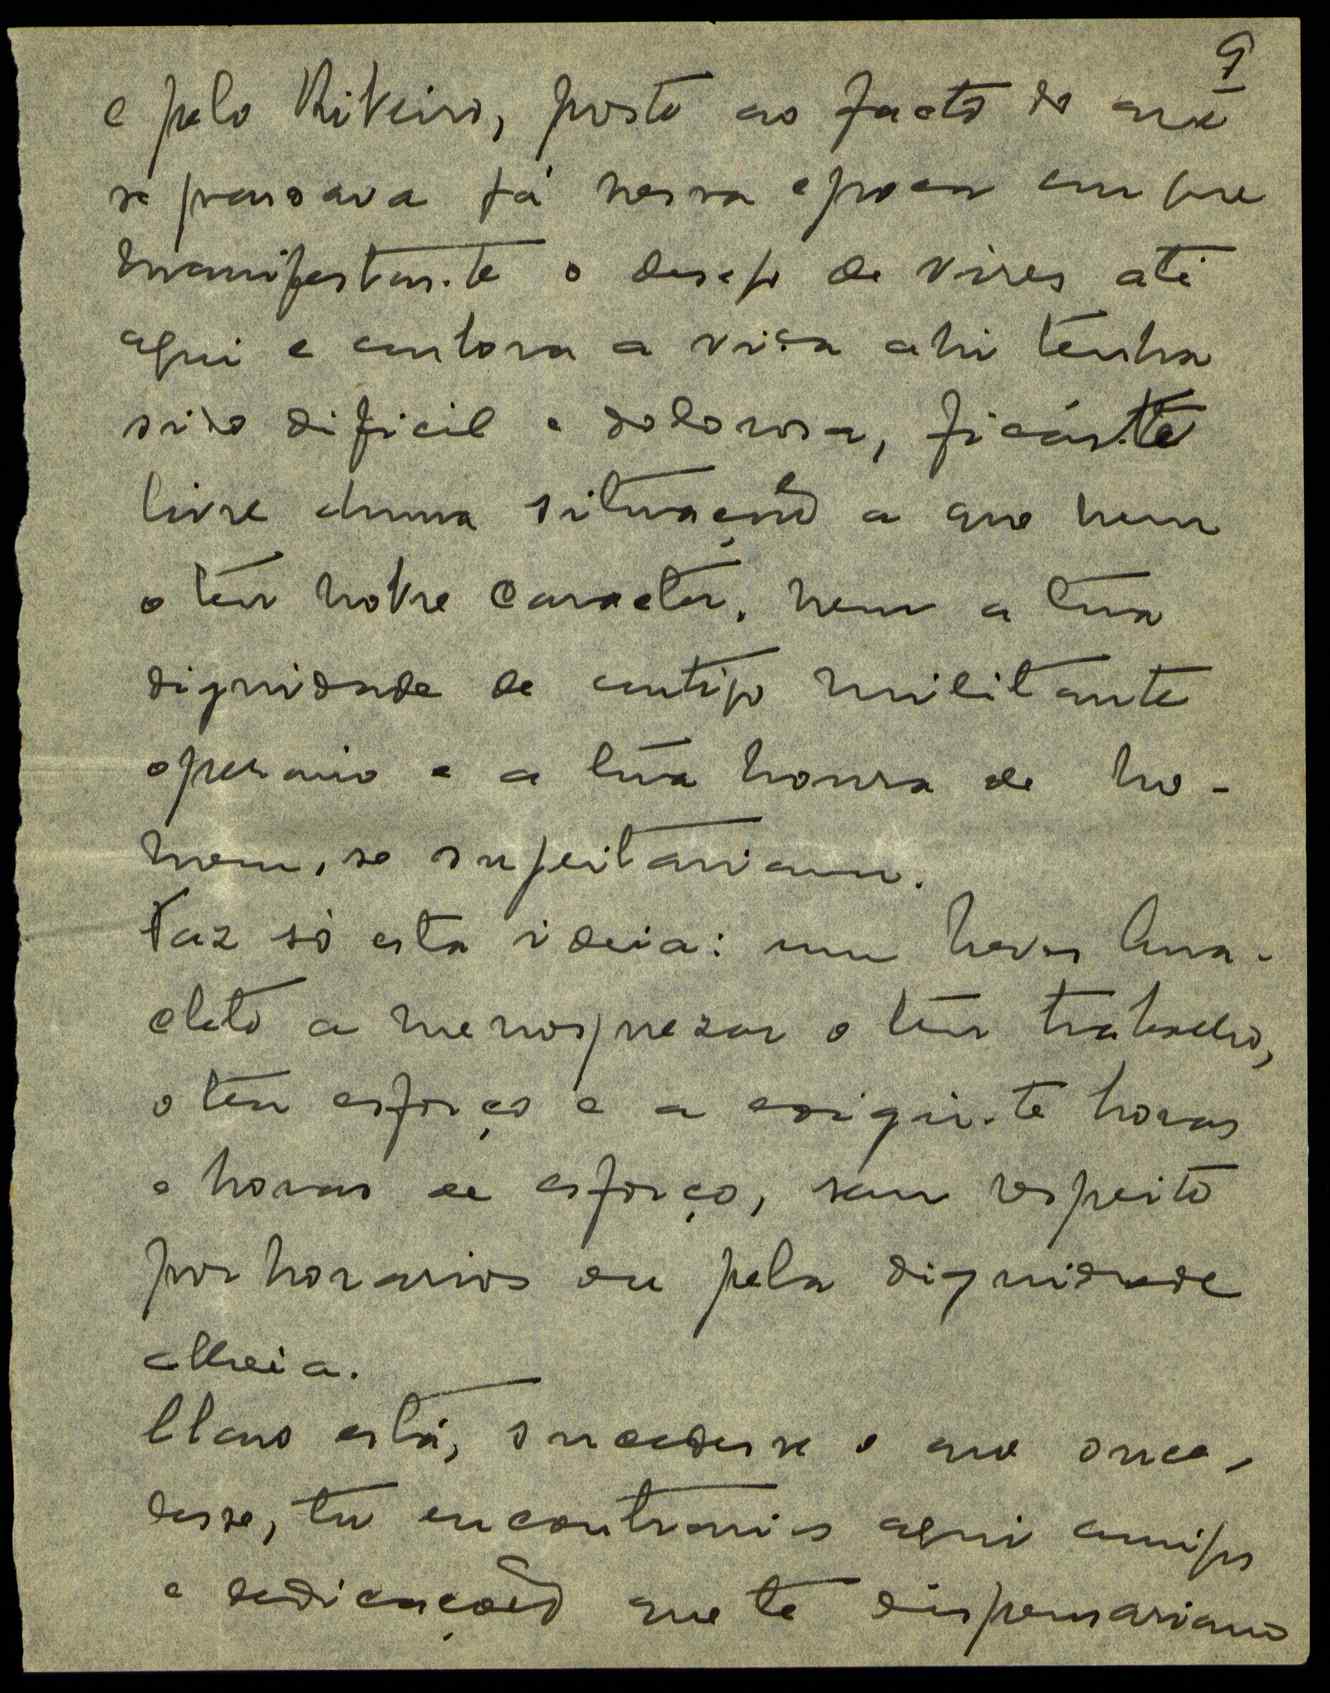 9
e pelo Ribeiro, posto ao facto do que
se passava já nessa epoca em que
manifestas-te o desejo de vires até
aqui e embora a vida ahi tenha
sido dificil e dolorosa, ficás-te
livre duma situação a que nem
o teu nobre caracter, nem a tua
dignidade de antigo militante
operario e a tua honra de ho-
mem, se sujeitariam.
Faz só esta ideia: um herve Ana-
cleto a menosprezar o teu trabalho,
o teu esforço e a exigir-te horas
e horas de esforço, sem respeito
por horarios ou pela dignidade
alheia.
Claro está, sucedesse o que suce-
desse, tu encontrarias aqui amigos
e dedicações que te dispensariam